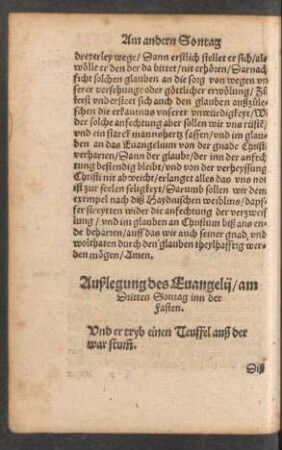 Am andern Sontag
dreyerley wege/ Dann erstlich stellet er sich/ als
wölle er den der da bittet/ nit erhören/ Darnach
ficht solchen glauben an die sorg von wegen vn
serer versehung oder götlicher erwölung/ Zů
letst vndersteet sich auch den glauben außzůle-
schen die erkantnus vnserer vnwirdigkeyt/ Wi
der solche anfechtung aber sollen wir vns rüstē/
vnd ein starck mannhertz fassen/ vnd im glau-
ben an das Euangelium von der gnade Christi
verharren/ Dann der glaube/ der inn der anfech
tung bestendig bleibt/ vnd von der verheyssung
Christi nit abweicht/ erlanget alles das vns not
ist zur seelen seligkeyt/ Darumb sollen wir dem
exempel nach diß Haydnischen weiblins/ dapf-
fer streytten wider die anfechtung der verzweif
lung/ vnd im glauben an Christum biß ans en-
de beharren/ auff das wir auch seiner gnad/ vnd
wolthaten durch den glauben theylhafftig wer-
den mögen/ Amen.
Außlegung des Euangelij/ am
Dritten Sontag inn der
Fasten.
Vnd er tryb einen Teuffel auß der
war stum̄.
Diß